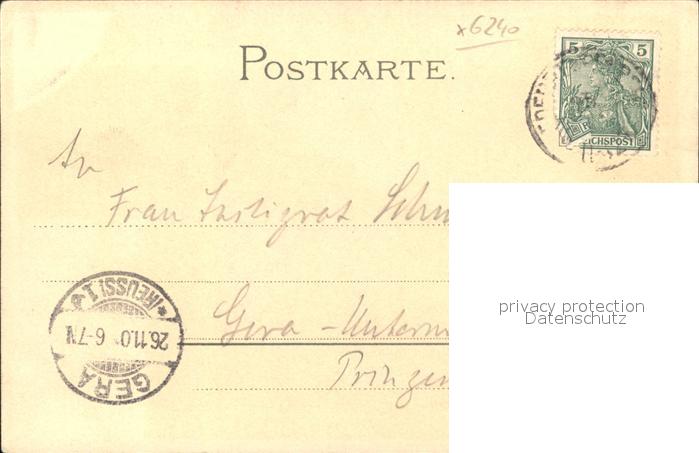 x6240
POSTKARTE.
5 5
REICHSPOST
An
Frau Justizrat Schu
Gera - Unterm
Prinzen
GERA
*(REUSS) 1.
26.11.0 6-7N
privacy protection
Datenschutz